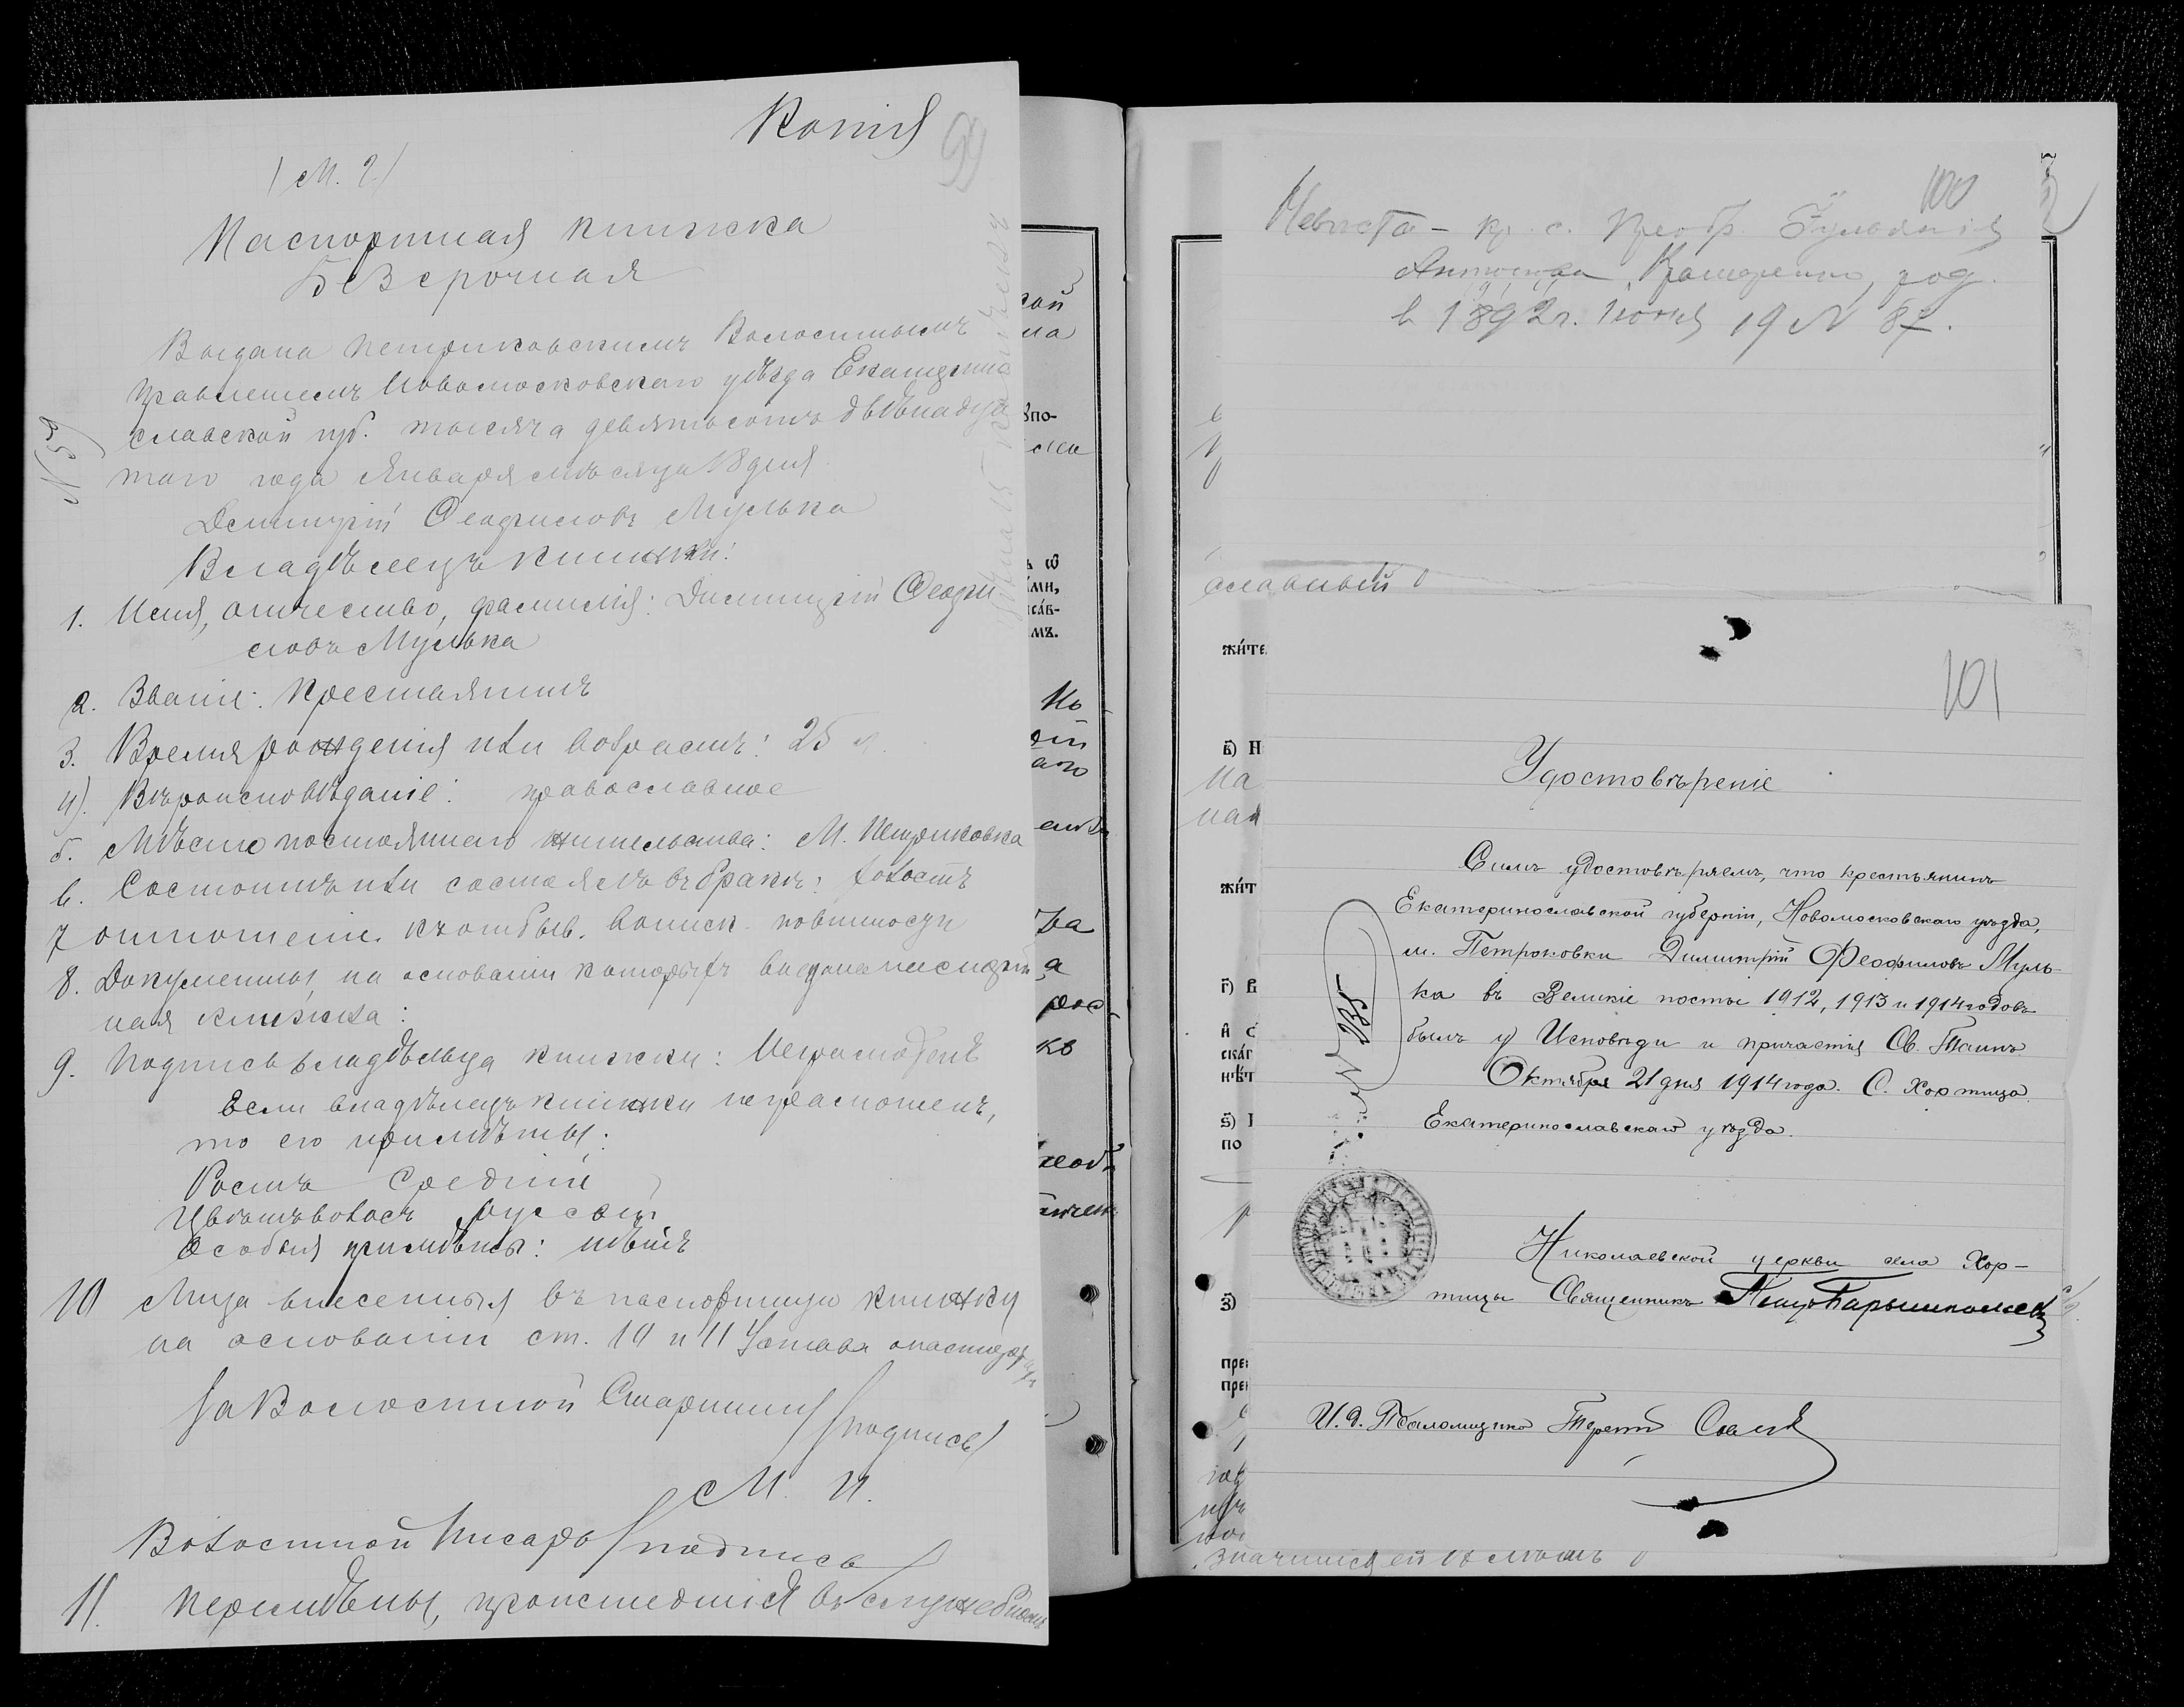 Копія
99
(М. 2)
Паспортная книжка
Безсрочная
Выдана Петриковскимъ Волостнымъ
Правленіемъ Новомосковскаго уѣзда Екатерино
славской губ. тысяча девятьсотъ двѣнадца
таго года Января мѣсяца 18 дня
Димитрій Феофиловъ Мулька
Владѣлецъ книжки:
1. Имя, отчество, фамилія: Димитрій Феофи
ловъ Мулька
2. Званіе: Крестьянинъ
3. Время рожденія или возрастъ: 25 л.
4). Вѣроисповѣданіе: православное
5. Мѣсто постояннаго жительства: М. Петриковка
6. Состоитъ или состоялъ въ бракѣ: холостъ
7 отношеніе къ отбыв. воинск. повинности
8. Документы, на основаніи которыхъ выдана паспорт
ная книжка:
9. Подпись владѣльца книжки: Неграмотенъ
Если владѣлецъ книжки неграмотенъ,
то его примѣты:
Ростъ Средній
Цвѣтъ волосъ русый
Особыя примѣты: нѣтъ
10 Лица внесенныя въ паспортную книжку
на основаніи ст. 10 и 11 Устава о паспортахъ
За Волостной Старшины (подпись)
М. П.
Волостной Писарь (подпись)
11. Перемѣны, происшедшія въ служебномъ
100
Невѣста - кр. с. Преобр.
Антонова Крамаренко, род.
в 1892 г. Іюня 19 N 87.
славный
101
Удостовѣреніе
Симъ удостовѣряемъ, что крестьянинъ
Екатеринославской губерніи, Новомосковскаго уѣзда,
м. Петроковки Димитрій Феофиловъ Муль-
ка въ Великіе посты 1912, 1913 и 1914 годовъ
былъ у Исповѣди и причастія Св. Таинъ
Октября 21 дня 1914 года. С. Хортица
Екатеринославскаго уѣзда.
N 235
Николаевской церкви села Хор-
тицы Священникъ
И. д. Псаломщика